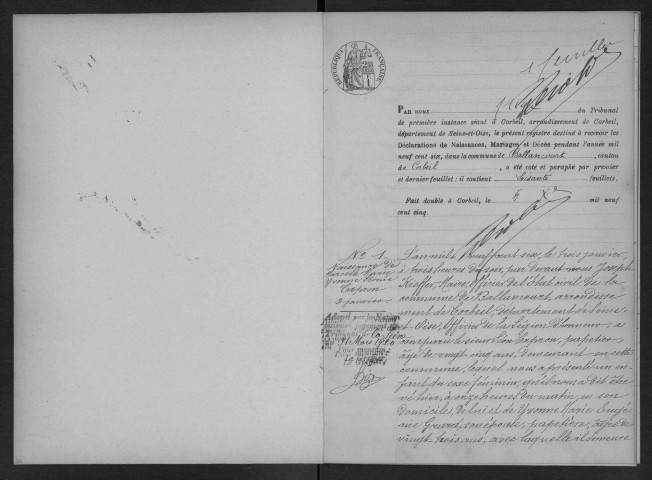 RÉPUBLIQUE FRANÇAISE
1er feuillet
PAR NOUS du Tribunal
de première instance séant à Corbeil, arrondissement de Corbeil,
département de Seine-et-Oise, le présent registre destiné à recevoir les
Déclarations de Naissances, Mariages et Décès pendant l'année mil
neuf cent six, dans la commune de Ballancourt, canton
de Corbeil, a été coté et paraphé par premier
et dernier feuillet: il contient soixante feuillets.
Fait double à Corbeil, le mil neuf
cent cinq.
No 1
Naissance de
Yvonne
Capron
2 janvier
L'an mil neuf cent six, le trois janvier,
à trois heures du soir, par devant nous Joseph
Kieffer, Maire, Officier de l'Etat civil de la
commune de Ballancourt, arrondisse
ment de Corbeil, département de Seine-
et-Oise, Officier de la Légion d'honneur, a
comparu le sieur Capron, papetier
âgé de vingt cinq ans, demeurant en cette
commune, lequel nous a présenté un en
fant du sexe féminin, qu'il nous a dit être
né hier, à onze heures du matin, en son
domicile, de lui et de Yvonne Marie Eugé
nie son épouse, papetière, âgée de
vingt trois ans, avec laquelle il demeure
21 Mars 1920